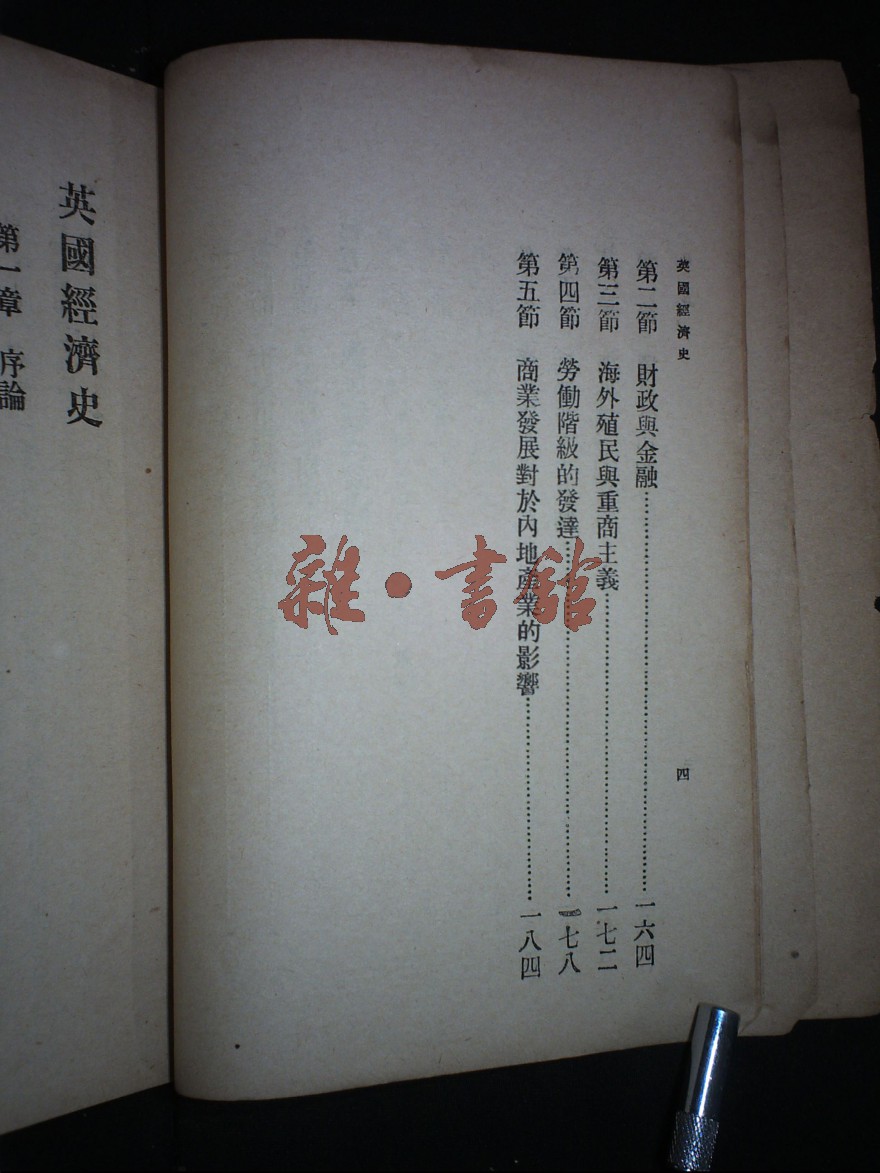 英國經濟史
四
第二節 財政與金融……一六四
第三節 海外殖民與重商主義……一七二
第四節 勞働階級的發達……一七八
第五節 商業發展對於內地產業的影響……一八四
英國經濟史
第一章 序論
雜·書館